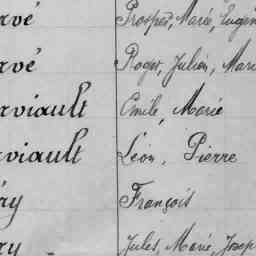 rvé Prosper, Marie, Eugèn
rvé Roger, Julien, Mari
rviault Emile, Marie
rviault Léon, Pierre
ry François
ry Jules, Marie, Josep